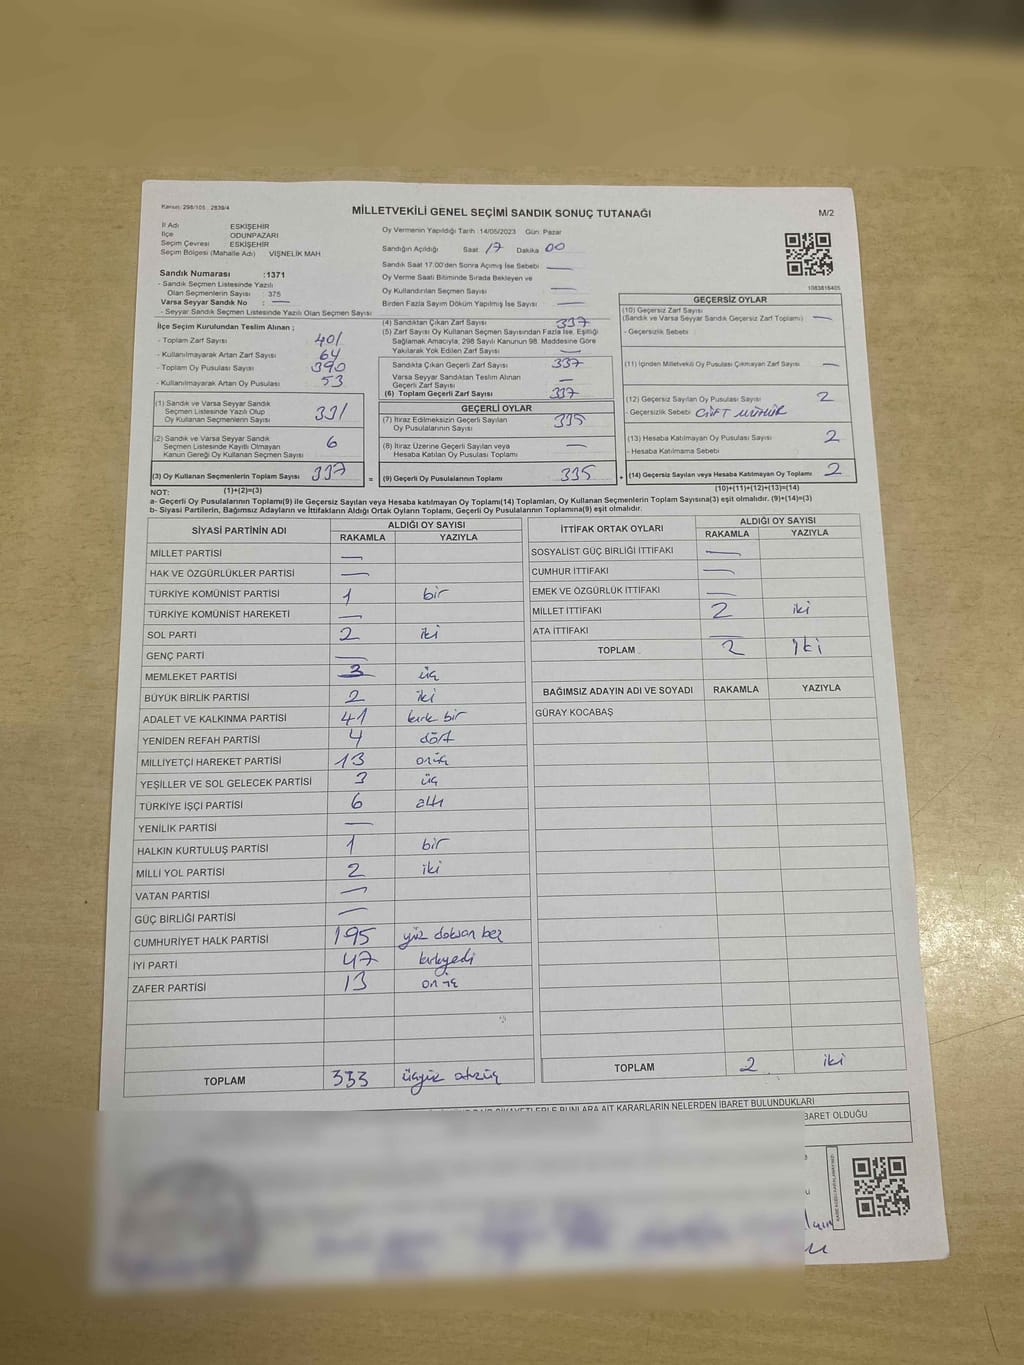 Kanun: 298/105 , 2839/4
MİLLETVEKİLİ GENEL SEÇİMİ SANDIK SONUÇ TUTANAĞI
M/2
İl Adı : ESKİŞEHİR
İlçe : ODUNPAZARI
Seçim Çevresi : ESKİŞEHİR
Seçim Bölgesi (Mahalle Adı) : VİŞNELİK MAH
Sandık Numarası :1371
- Sandık Seçmen Listesinde Yazılı
Olan Seçmenlerin Sayısı : 375
Varsa Seyyar Sandık No : —
- Seyyar Sandık Seçmen Listesinde Yazılı Olan Seçmen Sayısı
Oy Vermenin Yapıldığı Tarih :14/05/2023 Gün: Pazar
Sandığın Açıldığı Saat 17 Dakika 00
Sandık Saat 17.00'den Sonra Açımış İse Sebebi —
Oy Verme Saati Bitiminde Sırada Bekleyen ve
Oy Kullandırılan Seçmen Sayısı —
Birden Fazla Sayım Döküm Yapılmış İse Sayısı —
1083816405
İlçe Seçim Kurulundan Teslim Alınan ;
- Toplam Zarf Sayısı 401
- Kullanılmayarak Artan Zarf Sayısı 64
- Toplam Oy Pusulası Sayısı 390
- Kullanılmayarak Artan Oy Pusulası 53
(1) Sandık ve Varsa Seyyar Sandık
Seçmen Listesinde Yazılı Olup
Oy Kullanan Seçmenlerin Sayısı 331
(2) Sandık ve Varsa Seyyar Sandık
Seçmen Listesinde Kayıtlı Olmayan
Kanun Gereği Oy Kullanan Seçmen Sayısı 6
(3) Oy Kullanan Seçmenlerin Toplam Sayısı 337
(1)+(2)=(3)
(4) Sandıktan Çıkan Zarf Sayısı 337
(5) Zarf Sayısı Oy Kullanan Seçmen Sayısından Fazla İse, Eşitliği
Sağlamak Amacıyla, 298 Sayılı Kanunun 98. Maddesine Göre
Yakılarak Yok Edilen Zarf Sayısı —
Sandıkta Çıkan Geçerli Zarf Sayısı 337
Varsa Seyyar Sandıktan Teslim Alınan
Geçerli Zarf Sayısı —
(6) Toplam Geçerli Zarf Sayısı 337
GEÇERLİ OYLAR
(7) İtiraz Edilmeksizin Geçerli Sayılan
Oy Pusulalarının Sayısı 335
(8) İtiraz Üzerine Geçerli Sayılan veya
Hesaba Katılan Oy Pusulası Toplamı —
= (9) Geçerli Oy Pusulalarının Toplamı 335 +
GEÇERSİZ OYLAR
(10) Geçersiz Zarf Sayısı
(Sandık ve Varsa Seyyar Sandık Geçersiz Zarf Toplamı) —
- Geçersizlik Sebebi
(11) İçinden Milletvekili Oy Pusulası Çıkmayan Zarf Sayısı —
(12) Geçersiz Sayılan Oy Pusulası Sayısı 2
- Geçersizlik Sebebi ÇİFT MÜHÜR
(13) Hesaba Katılmayan Oy Pusulası Sayısı 2
- Hesaba Katılmama Sebebi
(14) Geçersiz Sayılan veya Hesaba Katılmayan Oy Toplamı 2
(10)+(11)+(12)+(13)=(14)
NOT:
a- Geçerli Oy Pusulalarının Toplamı(9) ile Geçersiz Sayılan veya Hesaba katılmayan Oy Toplamı(14) Toplamları, Oy Kullanan Seçmenlerin Toplam Sayısına(3) eşit olmalıdır. (9)+(14)=(3)
b- Siyasi Partilerin, Bağımsız Adayların ve İttifakların Aldığı Ortak Oyların Toplamı, Geçerli Oy Pusulalarının Toplamına(9) eşit olmalıdır.
SİYASİ PARTİNİN ADI ALDIĞI OY SAYISI
RAKAMLA YAZIYLA
MİLLET PARTİSİ —
HAK VE ÖZGÜRLÜKLER PARTİSİ —
TÜRKİYE KOMÜNİST PARTİSİ 1 bir
TÜRKİYE KOMÜNİST HAREKETİ —
SOL PARTİ 2 iki
GENÇ PARTİ —
MEMLEKET PARTİSİ 3 üç
BÜYÜK BİRLİK PARTİSİ 2 iki
ADALET VE KALKINMA PARTİSİ 41 kırk bir
YENİDEN REFAH PARTİSİ 4 dört
MİLLİYETÇİ HAREKET PARTİSİ 13 onüç
YEŞİLLER VE SOL GELECEK PARTİSİ 3 üç
TÜRKİYE İŞÇİ PARTİSİ 6 altı
YENİLİK PARTİSİ —
HALKIN KURTULUŞ PARTİSİ 1 bir
MİLLİ YOL PARTİSİ 2 iki
VATAN PARTİSİ —
GÜÇ BİRLİĞİ PARTİSİ —
CUMHURİYET HALK PARTİSİ 195 yüz doksan beş
İYİ PARTİ 47 kırkyedi
ZAFER PARTİSİ 13 on üç
TOPLAM 333 üçyüz otuzüç
İTTİFAK ORTAK OYLARI ALDIĞI OY SAYISI
RAKAMLA YAZIYLA
SOSYALİST GÜÇ BİRLİĞİ İTTİFAKI —
CUMHUR İTTİFAKI —
EMEK VE ÖZGÜRLÜK İTTİFAKI —
MİLLET İTTİFAKI 2 iki
ATA İTTİFAKI —
TOPLAM 2 iki
BAĞIMSIZ ADAYIN ADI VE SOYADI RAKAMLA YAZIYLA
GÜRAY KOCABAŞ
TOPLAM 2 iki
BUNLARA AİT KARARLARIN NELERDEN İBARET BULUNDUKLARI
BARET OLDUĞU